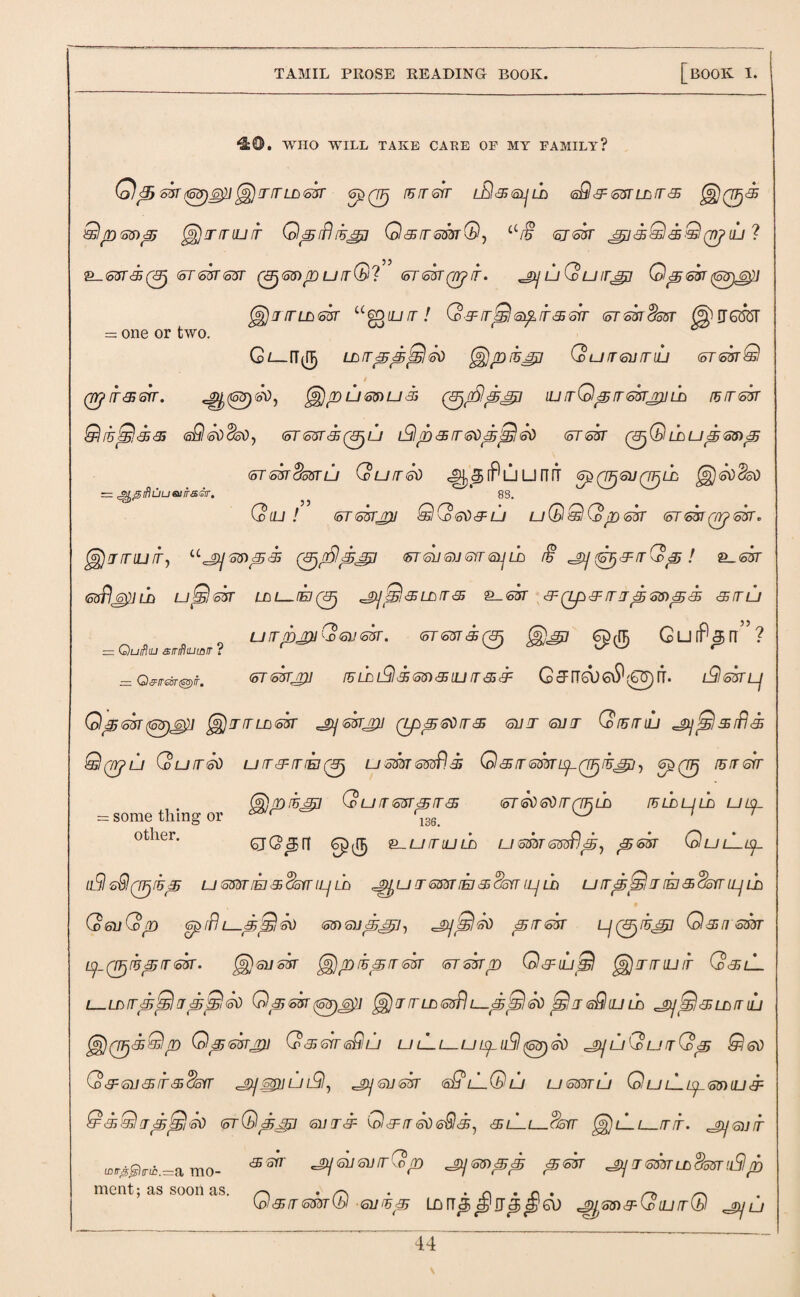 TAMIL PROSE READING BOOK. [BOOK I.
40. WHO WILL TAKE CARE OF MY FAMILY?
தென்னாலு இராமன் ஒரு நாள் மிகவும் விசனமாக இருக்
கிறதை இராயர் தெரிந்து கொண்டு, “நீ ஏன் துக்கிக்கிறாய் ?
உனக்கு என்ன குறைபாடு?” என்றார். அப்போது தென்னாலு
இராமன் “ஐயா ! சோதிடர்கள் என்னை இரண்
= one or two.
டொரு மாதத்தில் இறந்து போவாய் என்கி
றார்கள். ஆனால், இறப்பைபக் குறித்து யாதொன்றும் நான்
சிந்திக்க வில்லை, எனக்குப் பிற்காலத்தில் என் குடும்பத்தை
என்னைப் போல் ஆதரிப்பபார் ஒருவரும் இல்லை
= ஆதரிப்பவர்கள். 88.
யே !” என்று சிலேசப் படுகிறேன் என்றான்.
இராயர், “அதைக் குறித்து எவ்வளவும் நீ அஞ்சாதே ! உன்
னிலும் பதின் மடங்கு அதிகமாக உன் சமுசாரத்தைக் காப்
பாற்றுவேன். எனக்கு இது ஒரு பெரிதா” ?
= பெரிய காரியமா ?
= சொன்னார். என்று நம்பிக்கையாகச் சொல்லினார். பின்பு
தென்னாலு இராமன் அன்று முதலாக வர வர நோய் அதிகரிக்
கிறாப் போல் பாசாங்கு பண்ணிக் கொண்டிருந்து, ஒரு நாள்
இறந்து போனதாக எல்லாரும் நம்பும் படி
= some thing or 136.
other. ஏதோ ஒரு உபாயம் பண்ணித், தன் பெட்டி
யிலிருந்த பணங்களையும் ஆபரணங்களையும் பாத்திரங்களையும்
வேறே ஒரிடத்தில் வைத்து, அதில் தான் புகுந்து கொண்
டிருந்தான். இவன் இறந்தான் என்ற செய்தி இராயர் கேட்
டமாத்திரத்தில் தென்னாலு இராமனிடத்தில் திரவியம் அதிகமாய்
இருக்கிற தென்று கேள்விப் பட்டபடியினால் அப்போதே சில
சேவகர்களை அனுப்பி, அவன் வீட்டுப் பணப் பெட்டியைச்
சீக்கிரத்தில் எடுத்து வரச் சொல்லிக், கட்டளை இட்டார். அவர்
கள் அவ்வாறே அதைத் தன் அரண்மனையிற்
மாத்திரம்.=a mo-
ment; as soon as.
கொண்டு வந்த மாத்திரத்தில் ஆசையோடு அப்
44